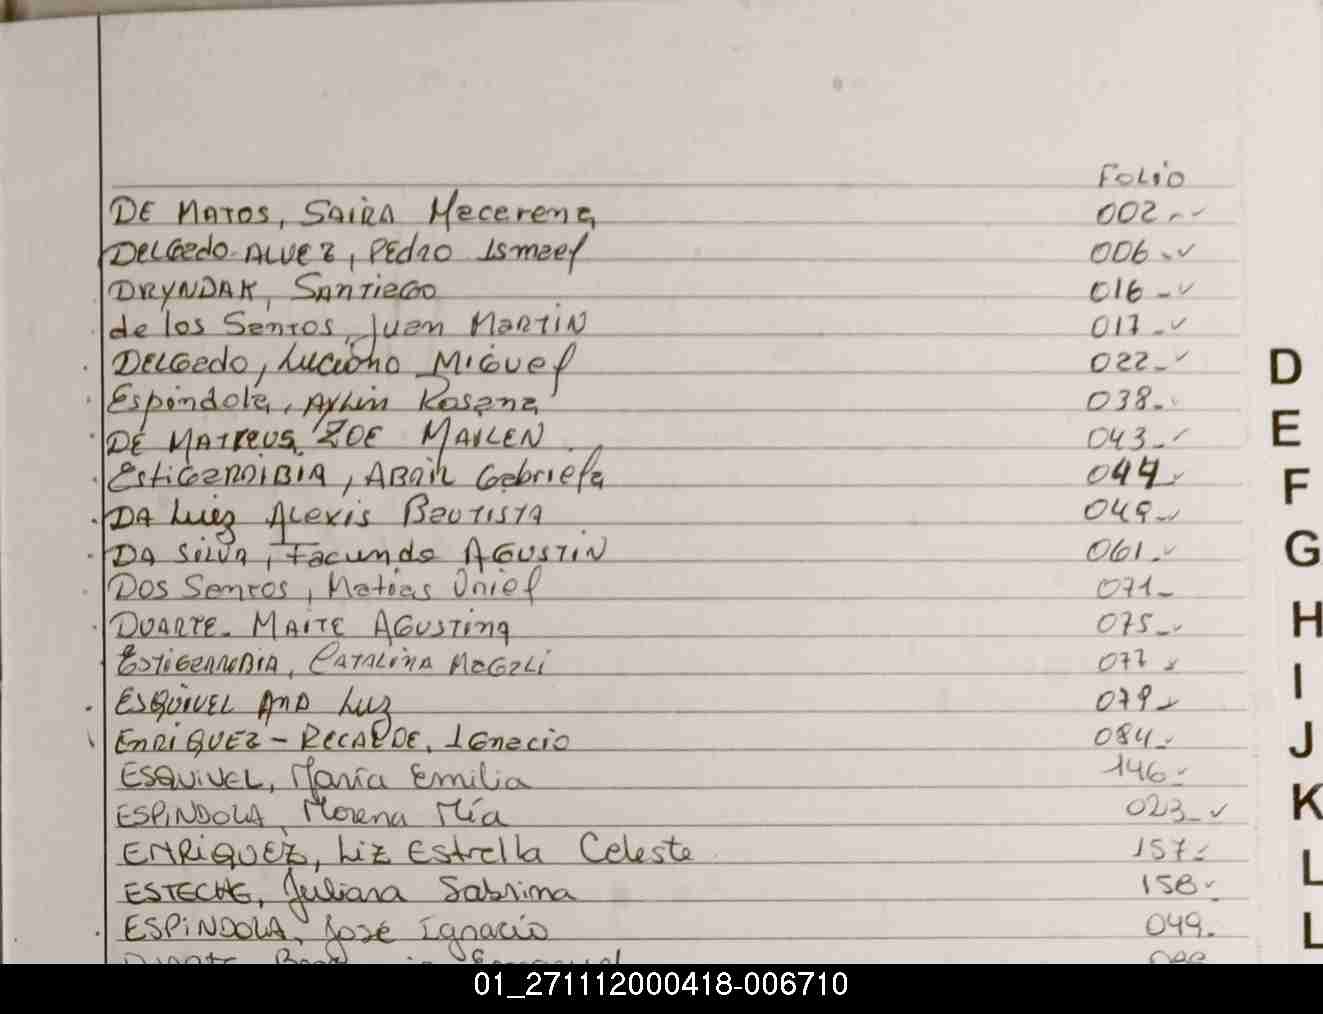 Folio
DE MATOS, SAIRA Macarena 002
DELGADO ALVEZ, PEDRO Ismael 006
DRYNDAK, SANTIAGO 016
de los Santos, Juan MARTIN 017
DELGADO, Luciano Miguel 022
Espindola, Aylin Rosana 038
DE MATTEUS, ZOE MAILEN 043
EstiGARRIBIA, ABAIL Gabriela 044
DA Luiz ALEXIS BAUTISTA 049
DA SILVA, Facundo AGUSTIN 061
DOS Santos, Matias Uriel 071
DUARTE. MAITE AGUSTINA 075
ESTIGARRIBIA, CATALINA MAGALI 077
ESQUIVEL ANA Luz 079
ENRIQUEZ-RECALDE, IGnacio 084
ESQUIVEL, María Emilia 146
ESPINDOLA, Morena Mía 023
ENRIQUEZ, Liz Estrella Celeste 157
ESTECHE, Juliana Sabrina 158
ESPINDOLA, José Ignacio 049
D
E
F
G
H
I
J
K
L
L
01_271112000418-006710